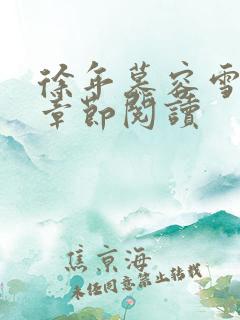 徐年慕容雪
章節閱讀
焦京海
未经同意禁止转载